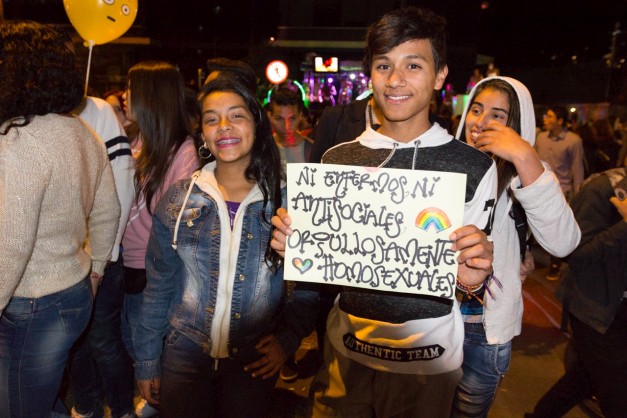 NI ENFERMOS NI
ANTISOCIALES
ORGULLOSAMENTE
HOMOSEXUALES
AUTHENTIC TEAM